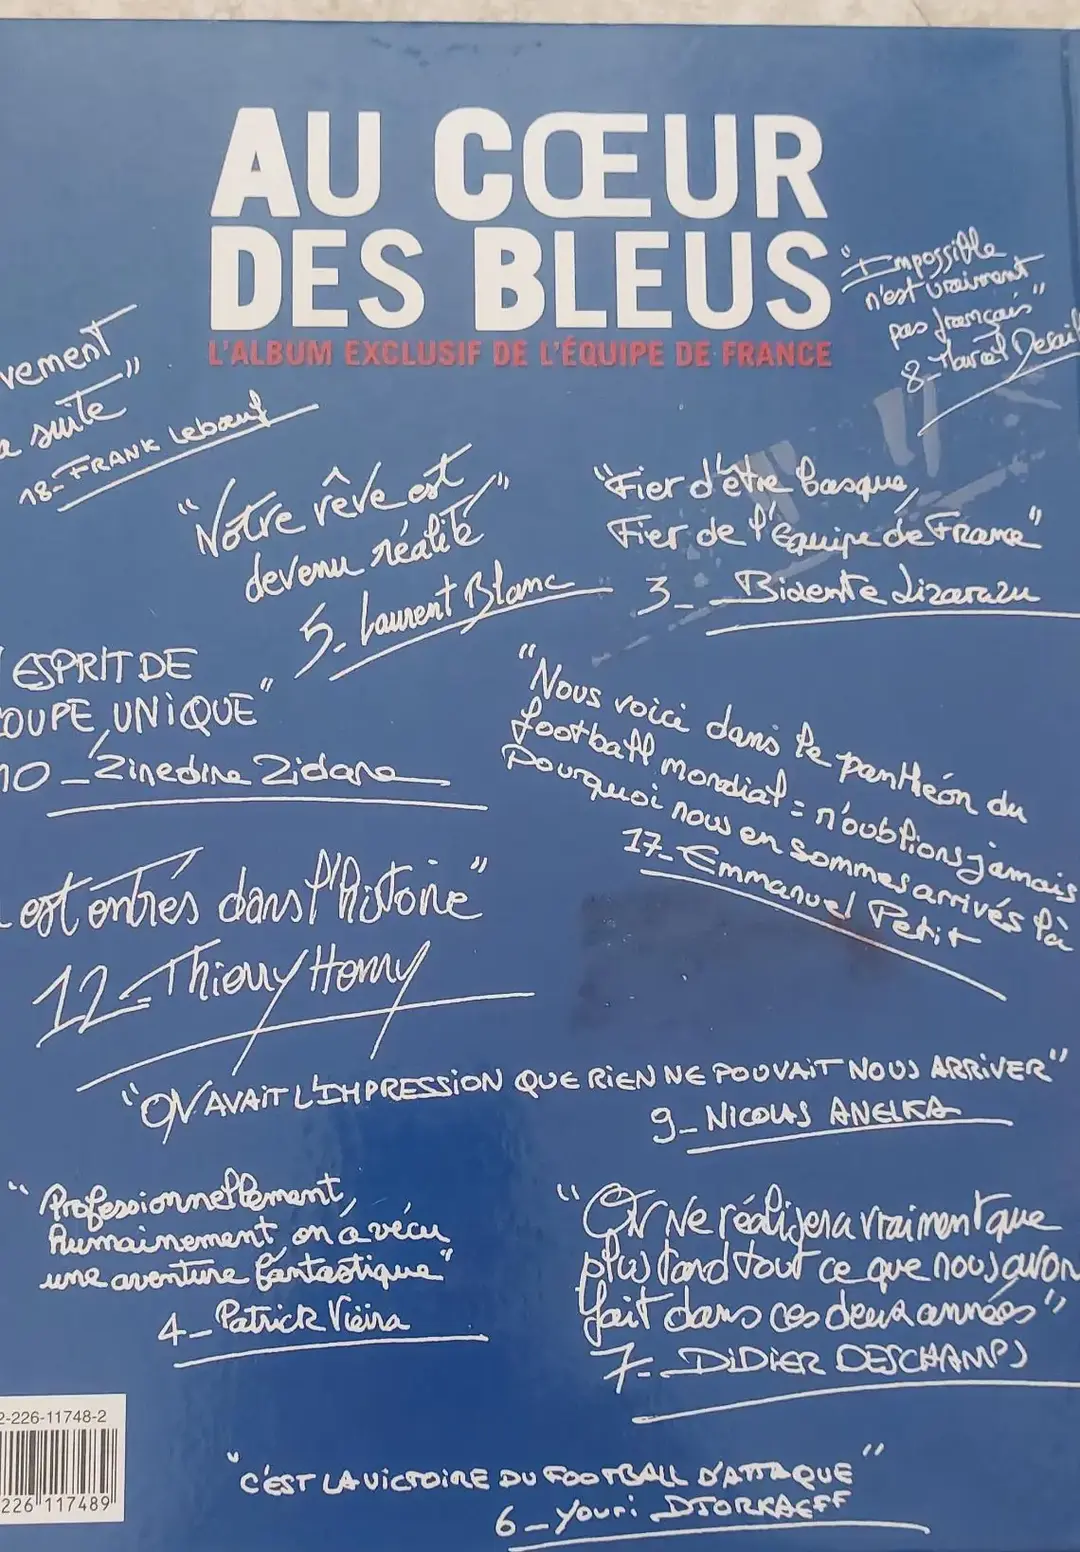 AU CŒUR
DES BLEUS
L'ALBUM EXCLUSIF DE L'ÉQUIPE DE FRANCE
"Impossible
n'est vraiment
pas français"
8_Marcel Desail
vement
a suite"
18_FRANK Lebœuf
"Notre rêve est
devenu réalité"
5_Laurent Blanc
"Fier d'être basque,
Fier de l'Equipe de France"
3_Bixente Lizarazu
ESPRIT DE
OUPE, UNIQUE"
10_Zinedine Zidane
"Nous voici dans le panthéon du
football mondial = n'oublions jamais
pourquoi nous en sommes arrivés là
17_Emmanuel Petit
est entrés dans l'histoire"
12_Thierry Henry
"ON AVAIT L'IMPRESSION QUE RIEN NE POUVAIT NOUS ARRIVER"
9_NICOLAS ANELKA
"Professionnellement,
humainement on a vécu
une aventure fantastique"
4_Patrick Vieira
"ON Ne réalisera vraiment que
plus tard tout ce que nous avon
fait dans ces deux années"
7_DIDIER DESCHAMPS
2-226-11748-2
226 117489
"C'EST LA VICTOIRE DU FOOTBALL D'ATTAQUE"
6_Youri DJORKAEFF